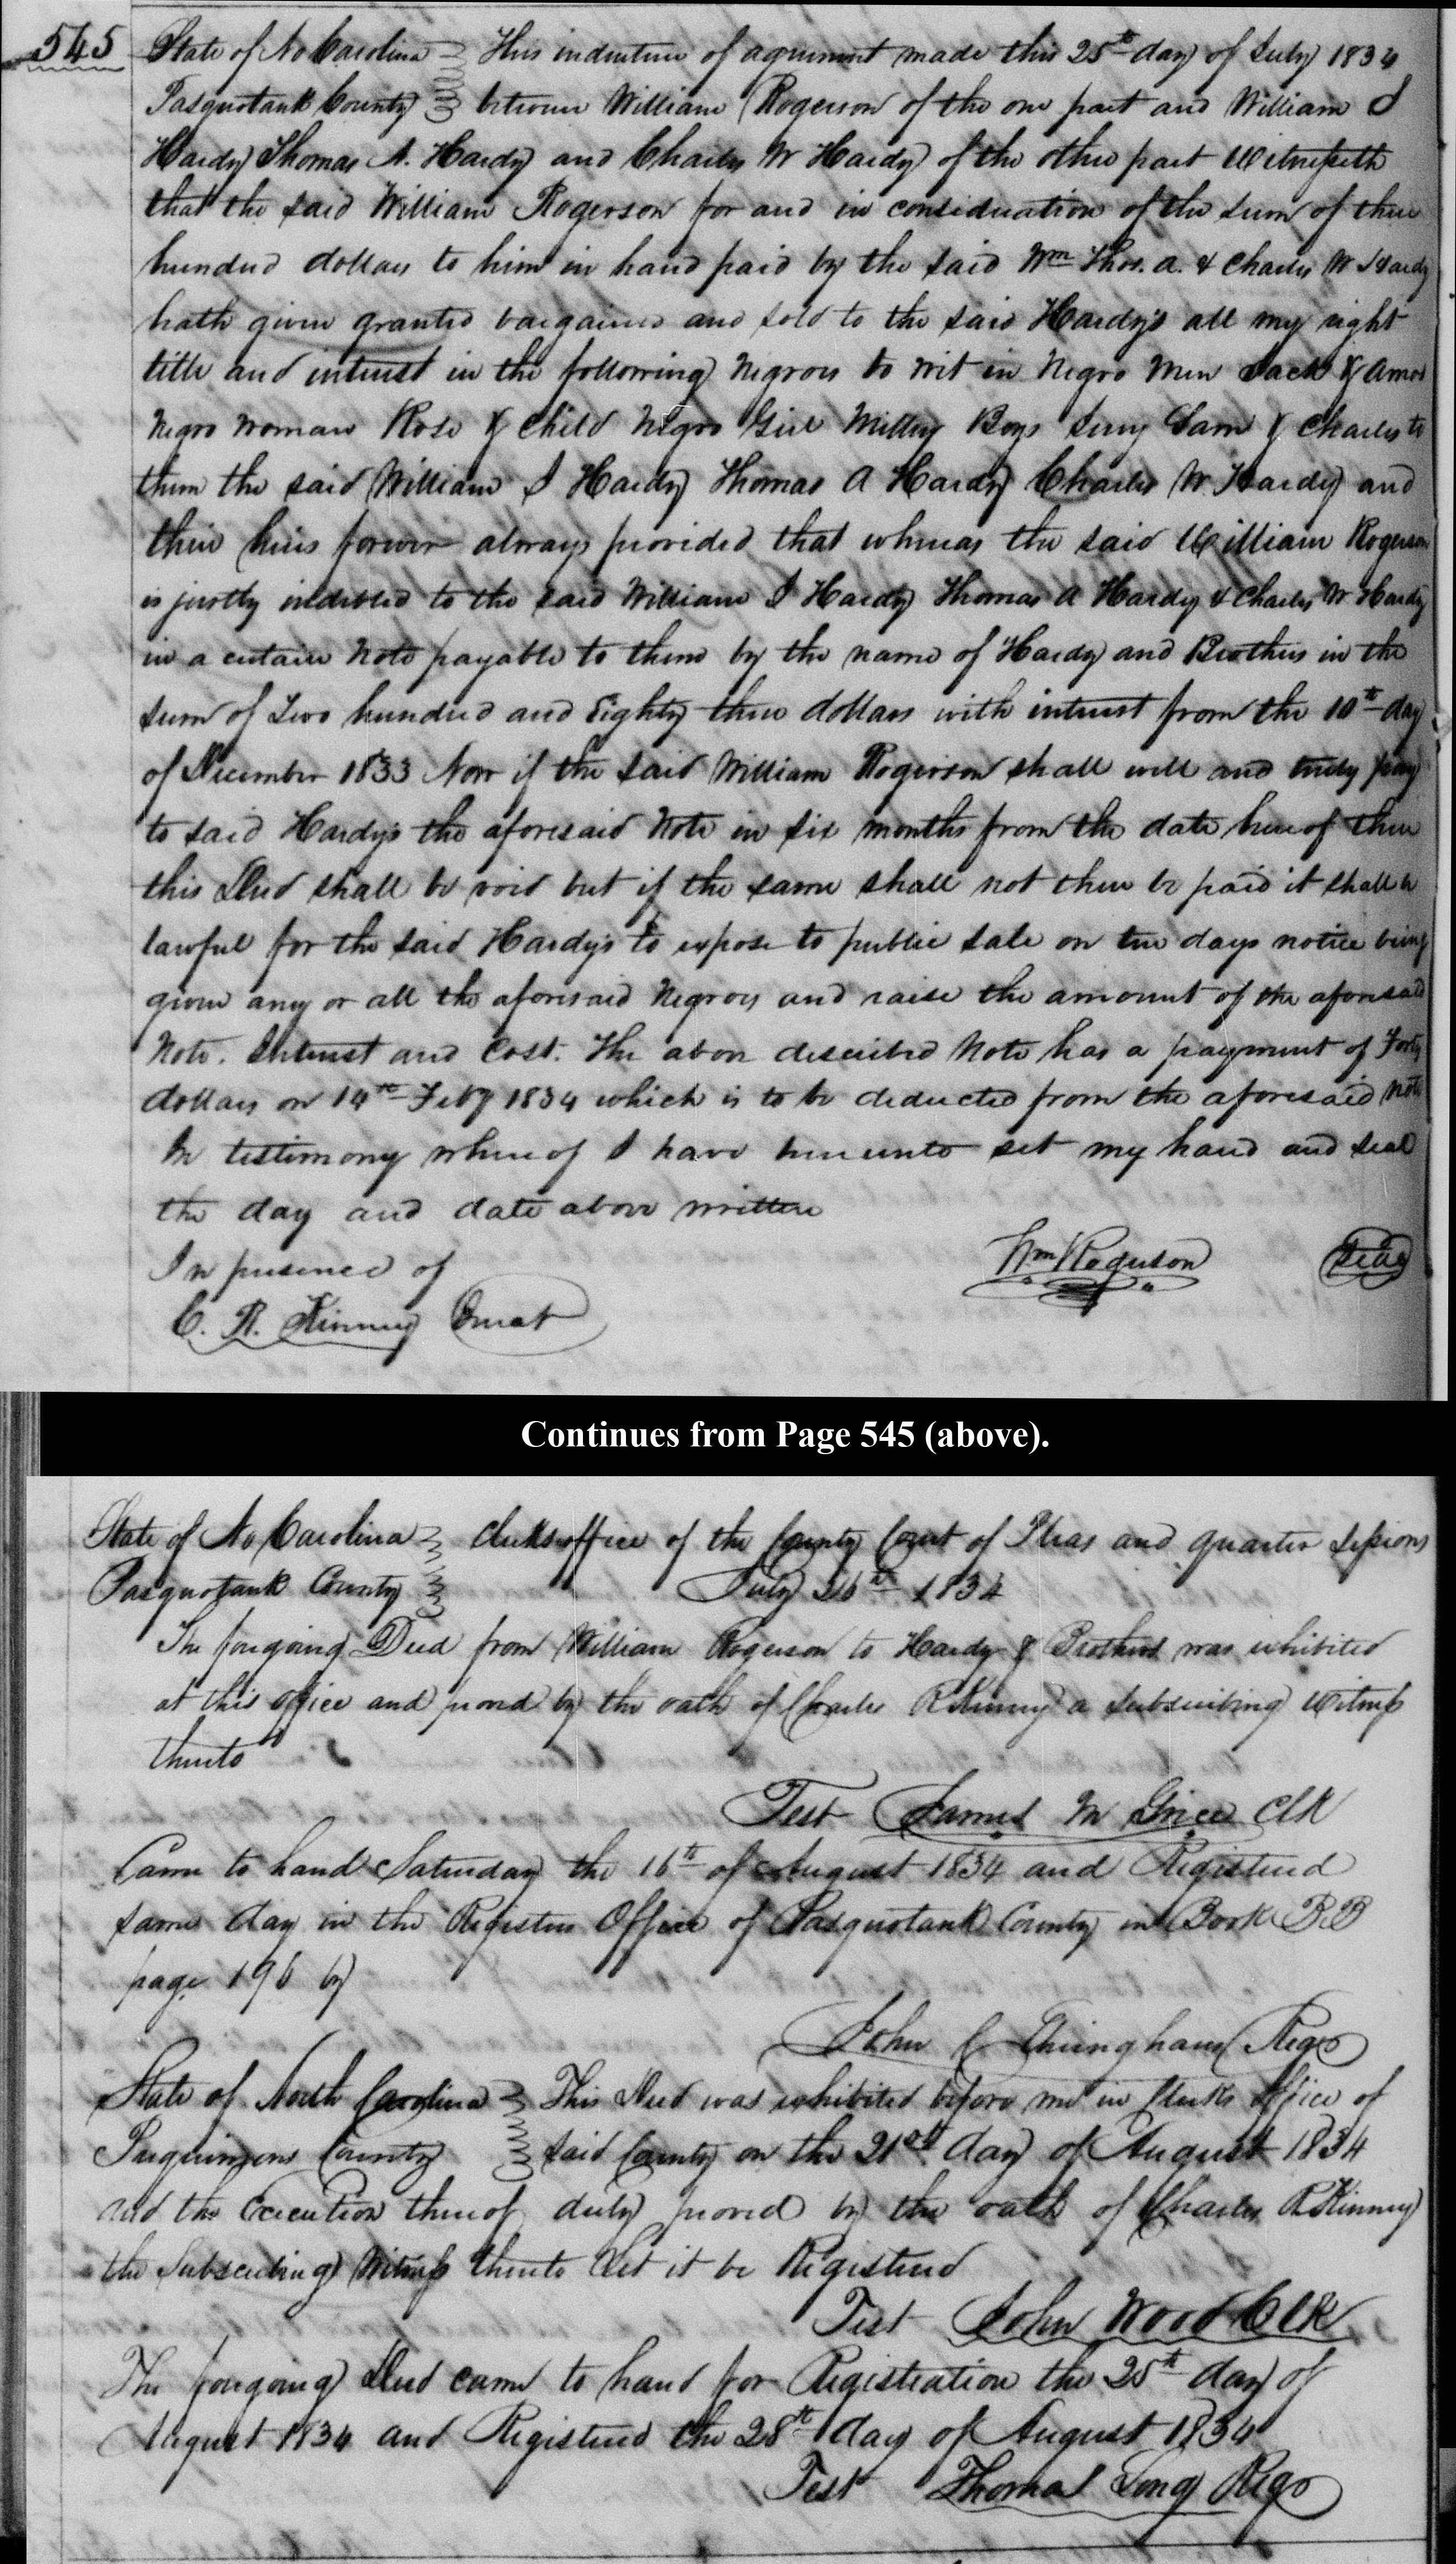 545 State of No Carolina This indenture of agreement made this 25th day of July 1834
Pasquotank County between William Rogerson of the one part and William I
Hardy Thomas A. Hardy and Charles W Hardy of the other part Witnesseth
that the said William Rogerson for and in consideration of the sum of three
hundred dollars to him in hand paid by the said Wm Thos. A. & Charles W Hardy
hath given granted bargained and sold to the said Hardy's all my right
title and interest in the following Negroes to wit in Negro Men Jack & Amos
Negro woman Rose & Child Negro Girl Milley Boys Sam & Charles to
them the said William I Hardy Thomas A Hardy Charles W. Hardy and
their heirs forever always provided that whereas the said William Rogerson
is justly indebted to the said William I Hardy Thomas A Hardy & Charles W Hardy
in a certain Note payable to them by the name of Hardy and Brothers in the
sum of Two hundred and Eighty three dollars with interest from the 10th day
of December 1833 Now if the said William Rogerson shall well and truly pay
to said Hardy's the aforesaid Note in six months from the date hereof then
this Deed shall be void but if the same shall not then be paid it shall be
lawful for the said Hardy's to expose to public sale on ten days notice being
given any or all the aforesaid Negroes and raise the amount of the aforesaid
Note. Interest and Cost. The above described Note has a payment of Forty
dollars on 14th Feby 1834 which is to be deducted from the aforesaid Note
In testimony whereof I have hereunto set my hand and seal
the day and date above written
In presence of Wm Rogerson Seal
C. R. Kinney Jurat
Continues from Page 545 (above).
State of No Carolina Clerks office of the County Court of Pleas and quarter Sessions
Pasquotank County July 26th 1834
The foregoing Deed from William Rogerson to Hardy & Brothers was exhibited
at this office and proved by the oath of Charles R Kinney a subscribing Witness
thereto
Test James M Grice Clk
Came to hand Saturday the 16th of August 1834 and Registered
same day in the Registers Office of Pasquotank County in Book BB
page 196 by
John C Ehringhaus Regr
State of North Carolina This Deed was exhibited before me in Clerks Office of
Perquimons County said County on the 21st day of August 1834
and the Execution thereof duly proved by the oath of Charles R Kinney
the Subscribing Witness thereto Let it be Registered
Test John Wood Clk
The foregoing Deed came to hand for Registration the 25th day of
August 1834 and Registered the 28th day of August 1834
Test Thomas Long Regr